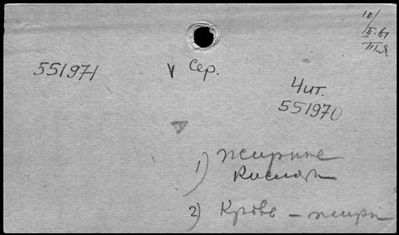 10/
IX-61
551971
V Сер.
Чит.
551970
1) Жирные
Кислоты
2) Кровь - жиры